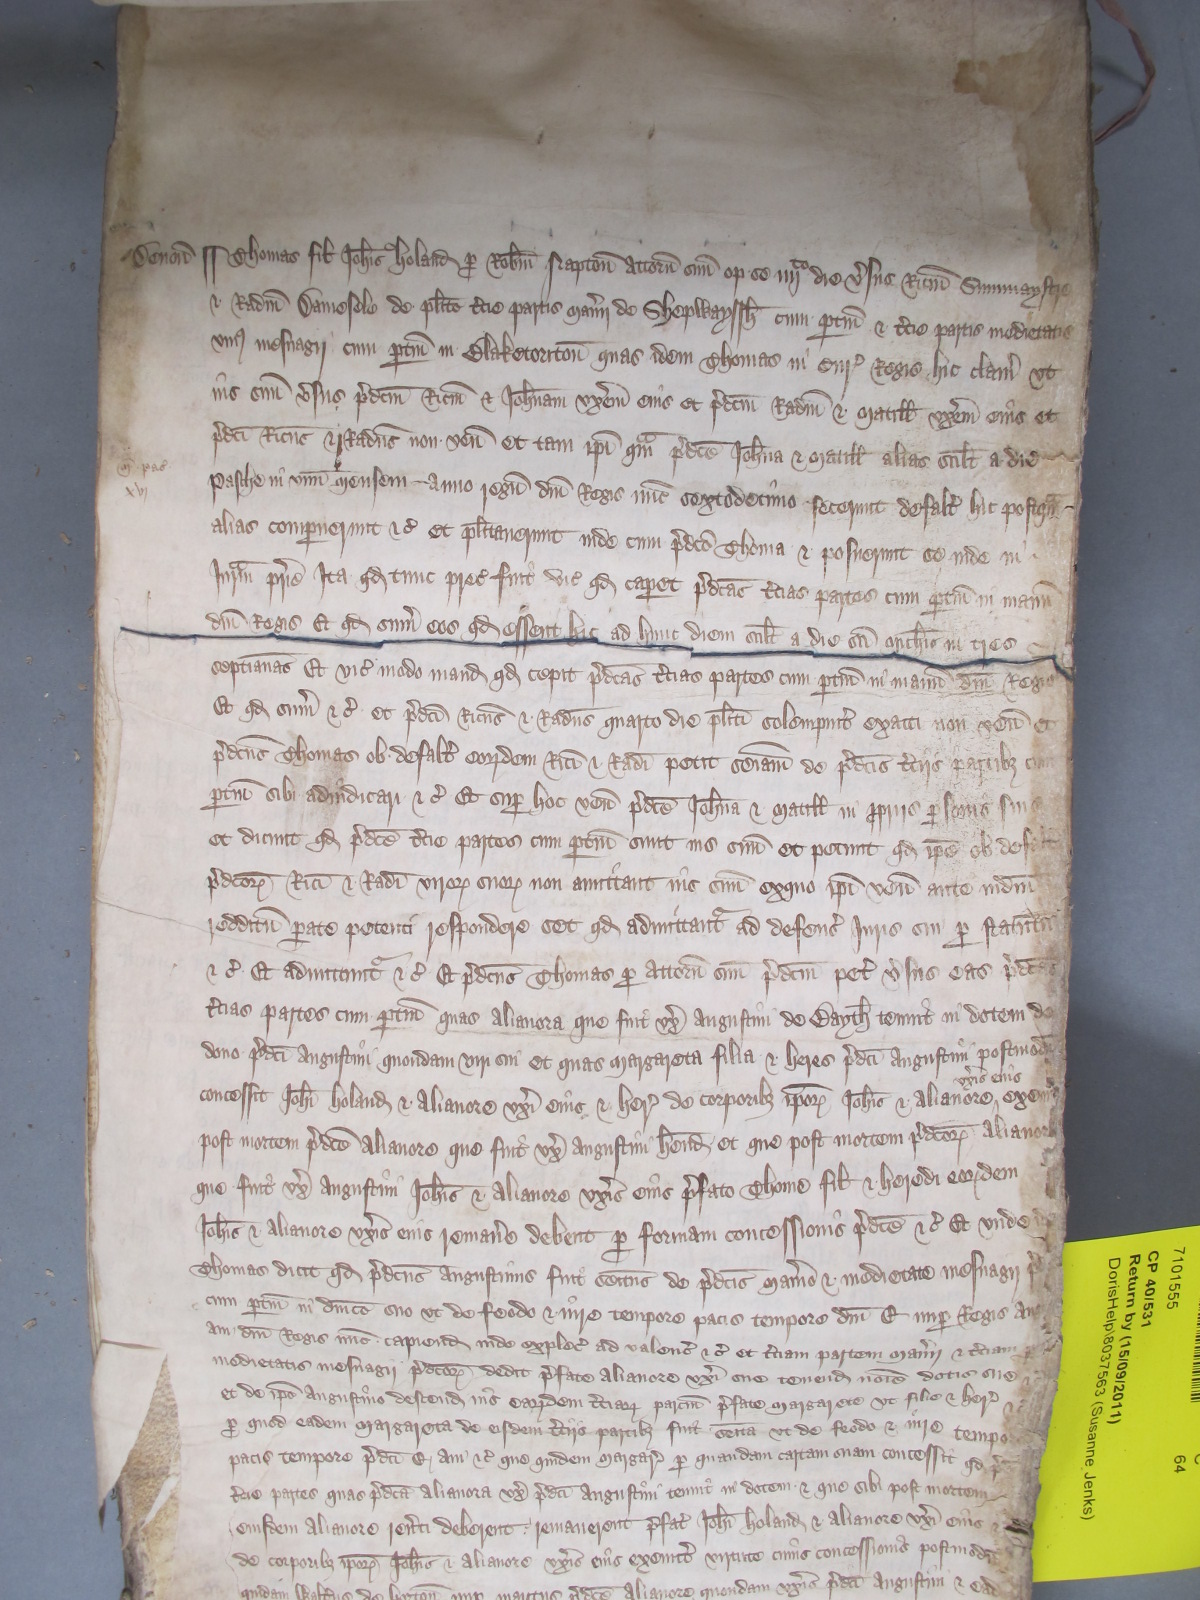 Devon ss Thomas fil Johis Holand p Robtm Frapton attorn suu op se iiijto die vsus Ricm Sum̃mayst
& Radm Damesele de plito tcie partis man̄ii de Shepwayssh cum ptiñ & tcie partis medietatis
uniꝰ mesuagii cum ptiñ in Blaketoriton quas idem Thomas in Cur Regis hic clam̃ ut
ius suu vsus pdcm Ricm & Johnam uxem eius et pdcm Radm & Matill uxem eius et
pdci Ricus & Radus non ven et tam ipi qm pdce Johna & Matill alias scilt a die
Pasche in unu mensem Anno regni dni Regis nunc sextodecimo fecerunt defalt hic postqm
m pas
xvj
alias compuerunt &c et plitauerunt inde cum pdco Thoma & posuerunt se inde in
Juram prie Ita qd tunc prec fuit vic qd caperet pdcas tcias partes cum ptiñ in manu
dni Regis Et qd sum eos qd essent hic ad hunc diem scilt a die sci Michis in tres
septianas Et vic modo mand qd cepit pdcas tcias partes cum ptiñ in manu dni Regis
Et qd sum &c et pdci Ricus & Radus quarto die pliti solempnit exacti non ven et
pdcus Thomas ob defalt eordem Rici & Radi petit seisiam de pdcis tciis partibz cum
ptiñ sibi adiudicari &c Et sup hoc ven pdce Johna & Matill in ppriis psonis suis
et dicunt qd pdce tcie partes cum ptiñ sunt ius suu et petunt qd ipe ob defalt
pdcorz Rici & Radi virorz suorz non amittant ius suu exquo ipi ven ante iudm
redditu parate petenti respondere set qd admittantr ad defens Juris sui p statutu
&c Et admittuntr &c Et pdcus Thomas p attorn suu pdcm pet vsus eas pdcas
tcias partes cum ptiñ quas Alianora que fuit ux Augustini de Bayth tenuit in dotem de
dono pdci Augustini quondam viri sui et quas Margareta filia & heres pdci Augustini postmodu
concessit Johi Holand & Alianore uxi eius & her de corporibz iporz Johis & Alianore uxis eius exeunt
post mortem pdce Alianore que fuit ux Augustini hend et que post mortem pdcorz Alianore
que fuit ux Augustini Johis & Alianore uxis eius pfato Thome fil & heredi eordem
Johis & Alianore uxis eius remane debent p formam concessionis pdce &c Et unde
Thomas dicit qd pdcus Augustinus fuit seitus de pdcis man̄io & medietate mesuagii
cum ptiñ in dnico suo ut de feodo & iure tempore pacis tempore dni E nup Regis
aui dni Regis nunc capiend inde explec ad valenc &c et tciam partem man̄ii & tciam
medietatis mesuagii pdcorz dedit pfate Alianore uxi sue tenend noie dotis sue
et de ipo Augustino descend ius eardem tciarz partiu pfate Margarete ut filie & her
p quod eadem Margareta de eisdem tciis partibz fuit seita ut de feodo & iure tempore
pacis tempore pdci E aui &c que quidem Margar p quandam cartam suam concessit qd
tcie partes quas pdca Alianora ux pdci Augustini tenuit in dotem & que sibi post mortem
eiusdem Alianore reuti deberent remanerent pfat Johi Holand & Alianore uxi eius
de corporibz iporz Johis & Alianore uxis eius exeuntt virtute cuius concessionis postmodu
quidam Walterus de nup maritus pdce Alianore quondam uxis pdci Augustini &
7101555
CP 40/531
Return by (15/09/2011)
DorisHelp\8037563 (Susanne Jenks)
64